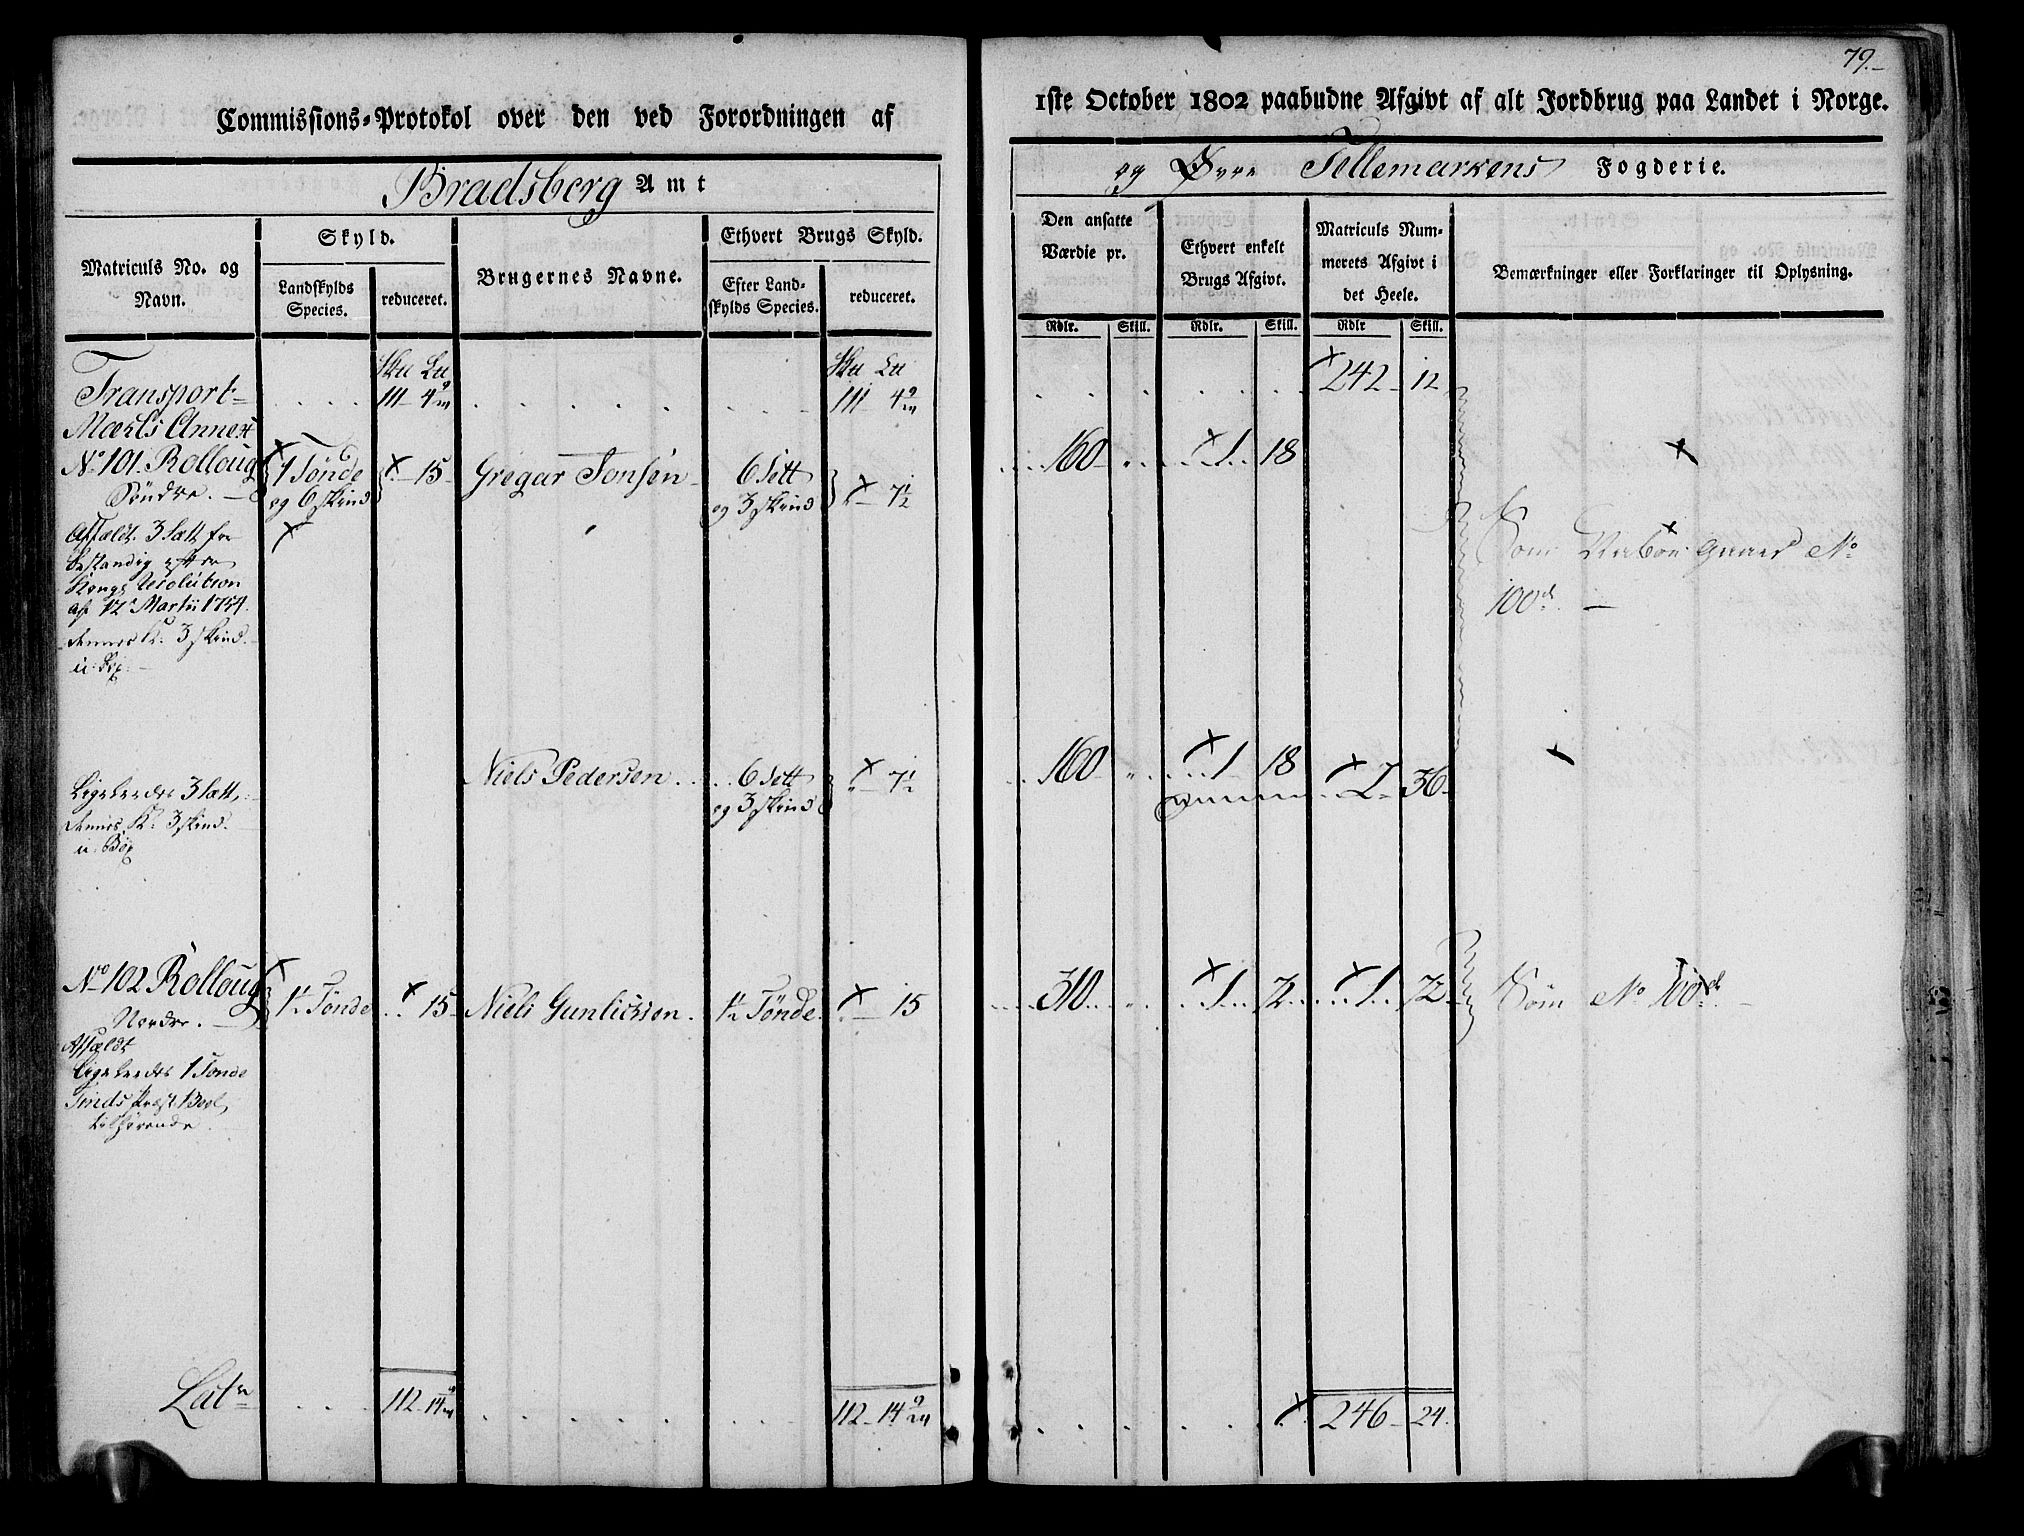 79.
Commissions-Protokol over den ved Forordningen af
1ste October 1802 paabudne Afgivt af alt Jordbrug paa Landet i Norge.
Bradsberg Amt
og Øvre Tellemarkens Fogderie.
Matriculs No. og Navn.
Skyld.
Landskylds Species.
reduceret.
Brugernes Navne.
Ethvert Brugs Skyld.
Efter Landskylds Species.
reduceret.
Den ansatte Værdie pr.
Ethvert enkelt Brugs Afgivt.
Matriculs Nummerets Afgivt i det Heele.
Bemærkninger eller Forklaringer til Oplysning.
Rdlr. Skill. Rdlr. Skill. Rdlr Skill.
Transport 111 4 111 4 242 12
Mærls Annex
No 101. Rolloug 1 Tønde 15 Gregar Jonsen 6 Sett 7½ 160 1 18
Søndre. og 6 skind og 3 skind
Affældt. 3 Sætt for
bestandig efter
Kongs. Resolution
af 12 Martii 1754.
3 skind
Som No
100
Niels Pedersen 6 Sett 7½ 160 1 18 2 36
og 3 skind
Ligeledes 3 Sætt,
3 skind
No 102 Rolloug 1½ Tønde 15 Niels Gunlicksen 1½ Tønde 15 310 1 72 1 72 Som No 100
Nordre.
Affældt
Ligeledes 1 Tønde
Tinds Præst Boel
tilhørende.
Lat 112 14 112 14 246 24